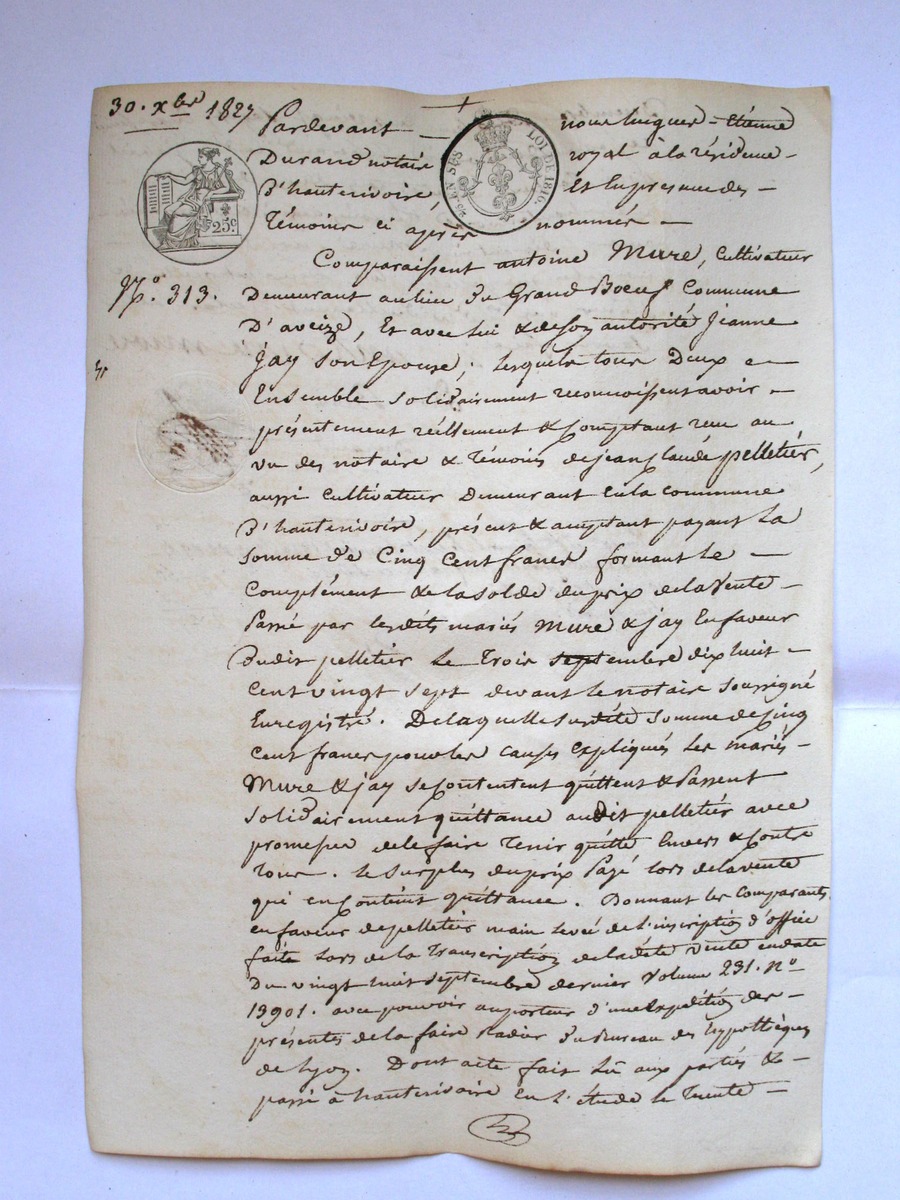 30. xbre 1827
Pardevant nous hugues - Etienne
25 EN SUS
LOI DE 1816.
Durand notaire royal à la résidence -
25c
D'hauterivoire, Et En présence des -
Témoins ci après nommés -
Comparaissent antoine Mure, Cultivateur
No. 313.
Demeurant au lieu du Grand Boeuf Commune
D'aveize, Et avec lui & de son autorité Jeanne
Jay son Epouse; lesquels tous Deux -
Ensemble solidairement reconnoissent avoir -
présentement réellement & comptant reçu au
vu des notaire & Témoins de jean claude pelletier,
aussi Cultivateur Demeurant en la commune
D'hauterivoire, présent & acceptant payant la
somme de Cinq Cent francs formant le -
Complément & de la solde du prix de la Vente -
Passé par lesdits mariés Mure & jay En faveur
Dudit pelletier le Trois septembre dix huit -
Cent vingt sept devant le notaire soussigné
Enregistré. De laquelle susdite somme de Cinq
Cent francs pour les causes Expliqués les mariés -
Mure & jay se contentent quittent & Passent
solidairement quittance audit pelletier avec
promesse de le faire Tenir quitte Envers & Contre
Tous. le surplus du prix Payé lors de la vente
qui en contient quittance. Donnant les Comparants
en faveur de pelletier main levée de l'inscription d'office
faite lors de la Transcription de ladite vente en date
Du vingt huit septembre dernier Volume 231. No
13901. avec pouvoir au porteur d'une Expédition des -
présentes de la faire Radier Du Bureau des hypothèques
de Lyon. Dont acte fait lû aux parties & -
passé a hauterivoire En l'étude le Trente -